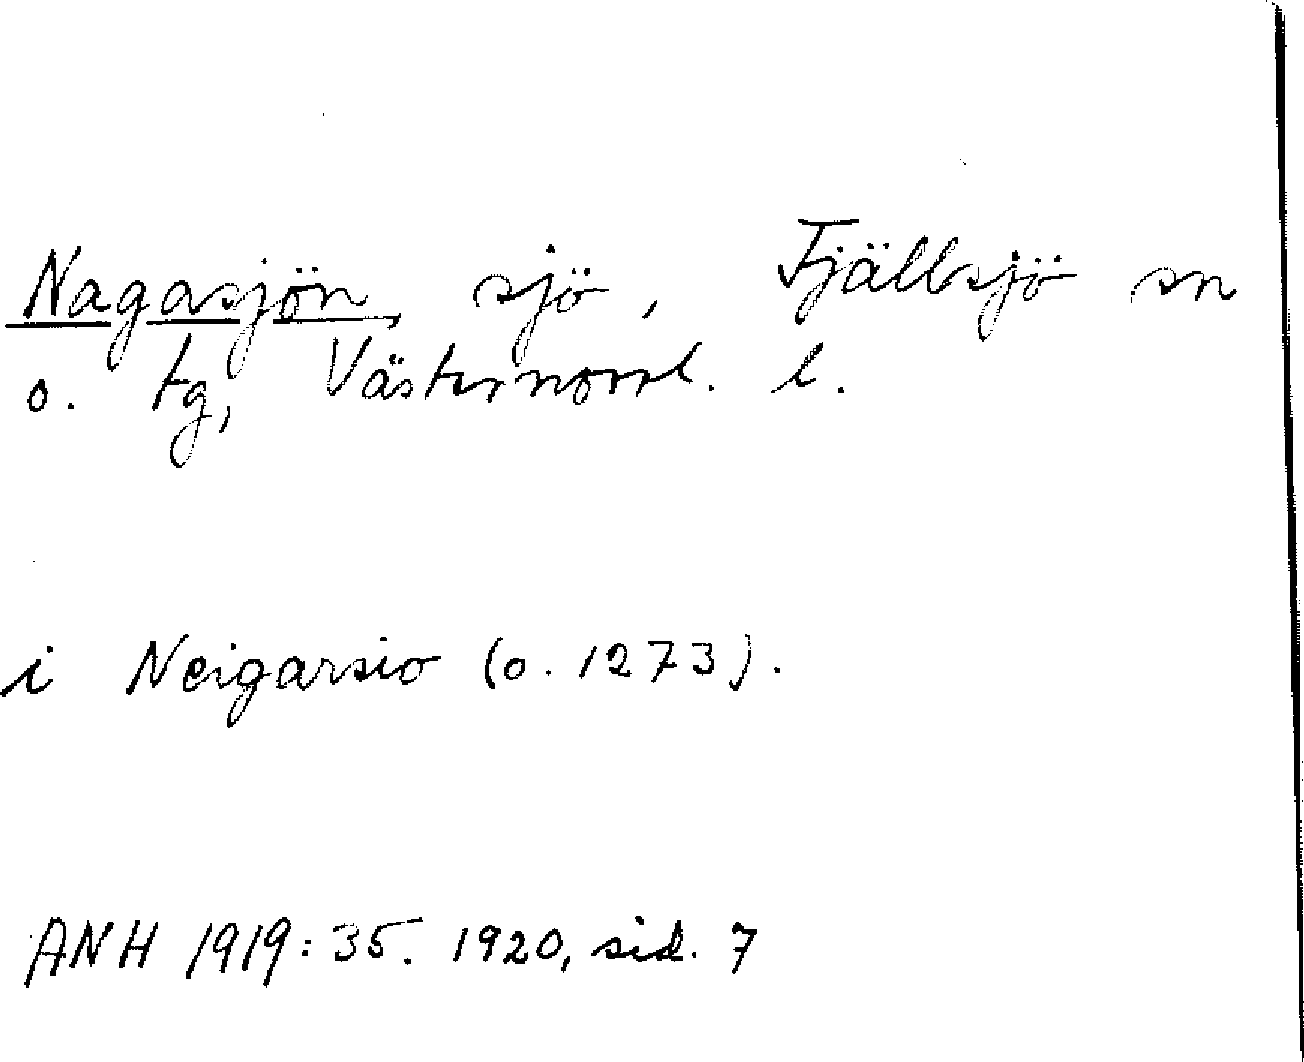 Nagasjön, sjö, Fjällsjö sn
o. tg, Västernorrl. l.
i Neigarsio (o. 1273).
ANH 1919:35. 1920, sid. 7